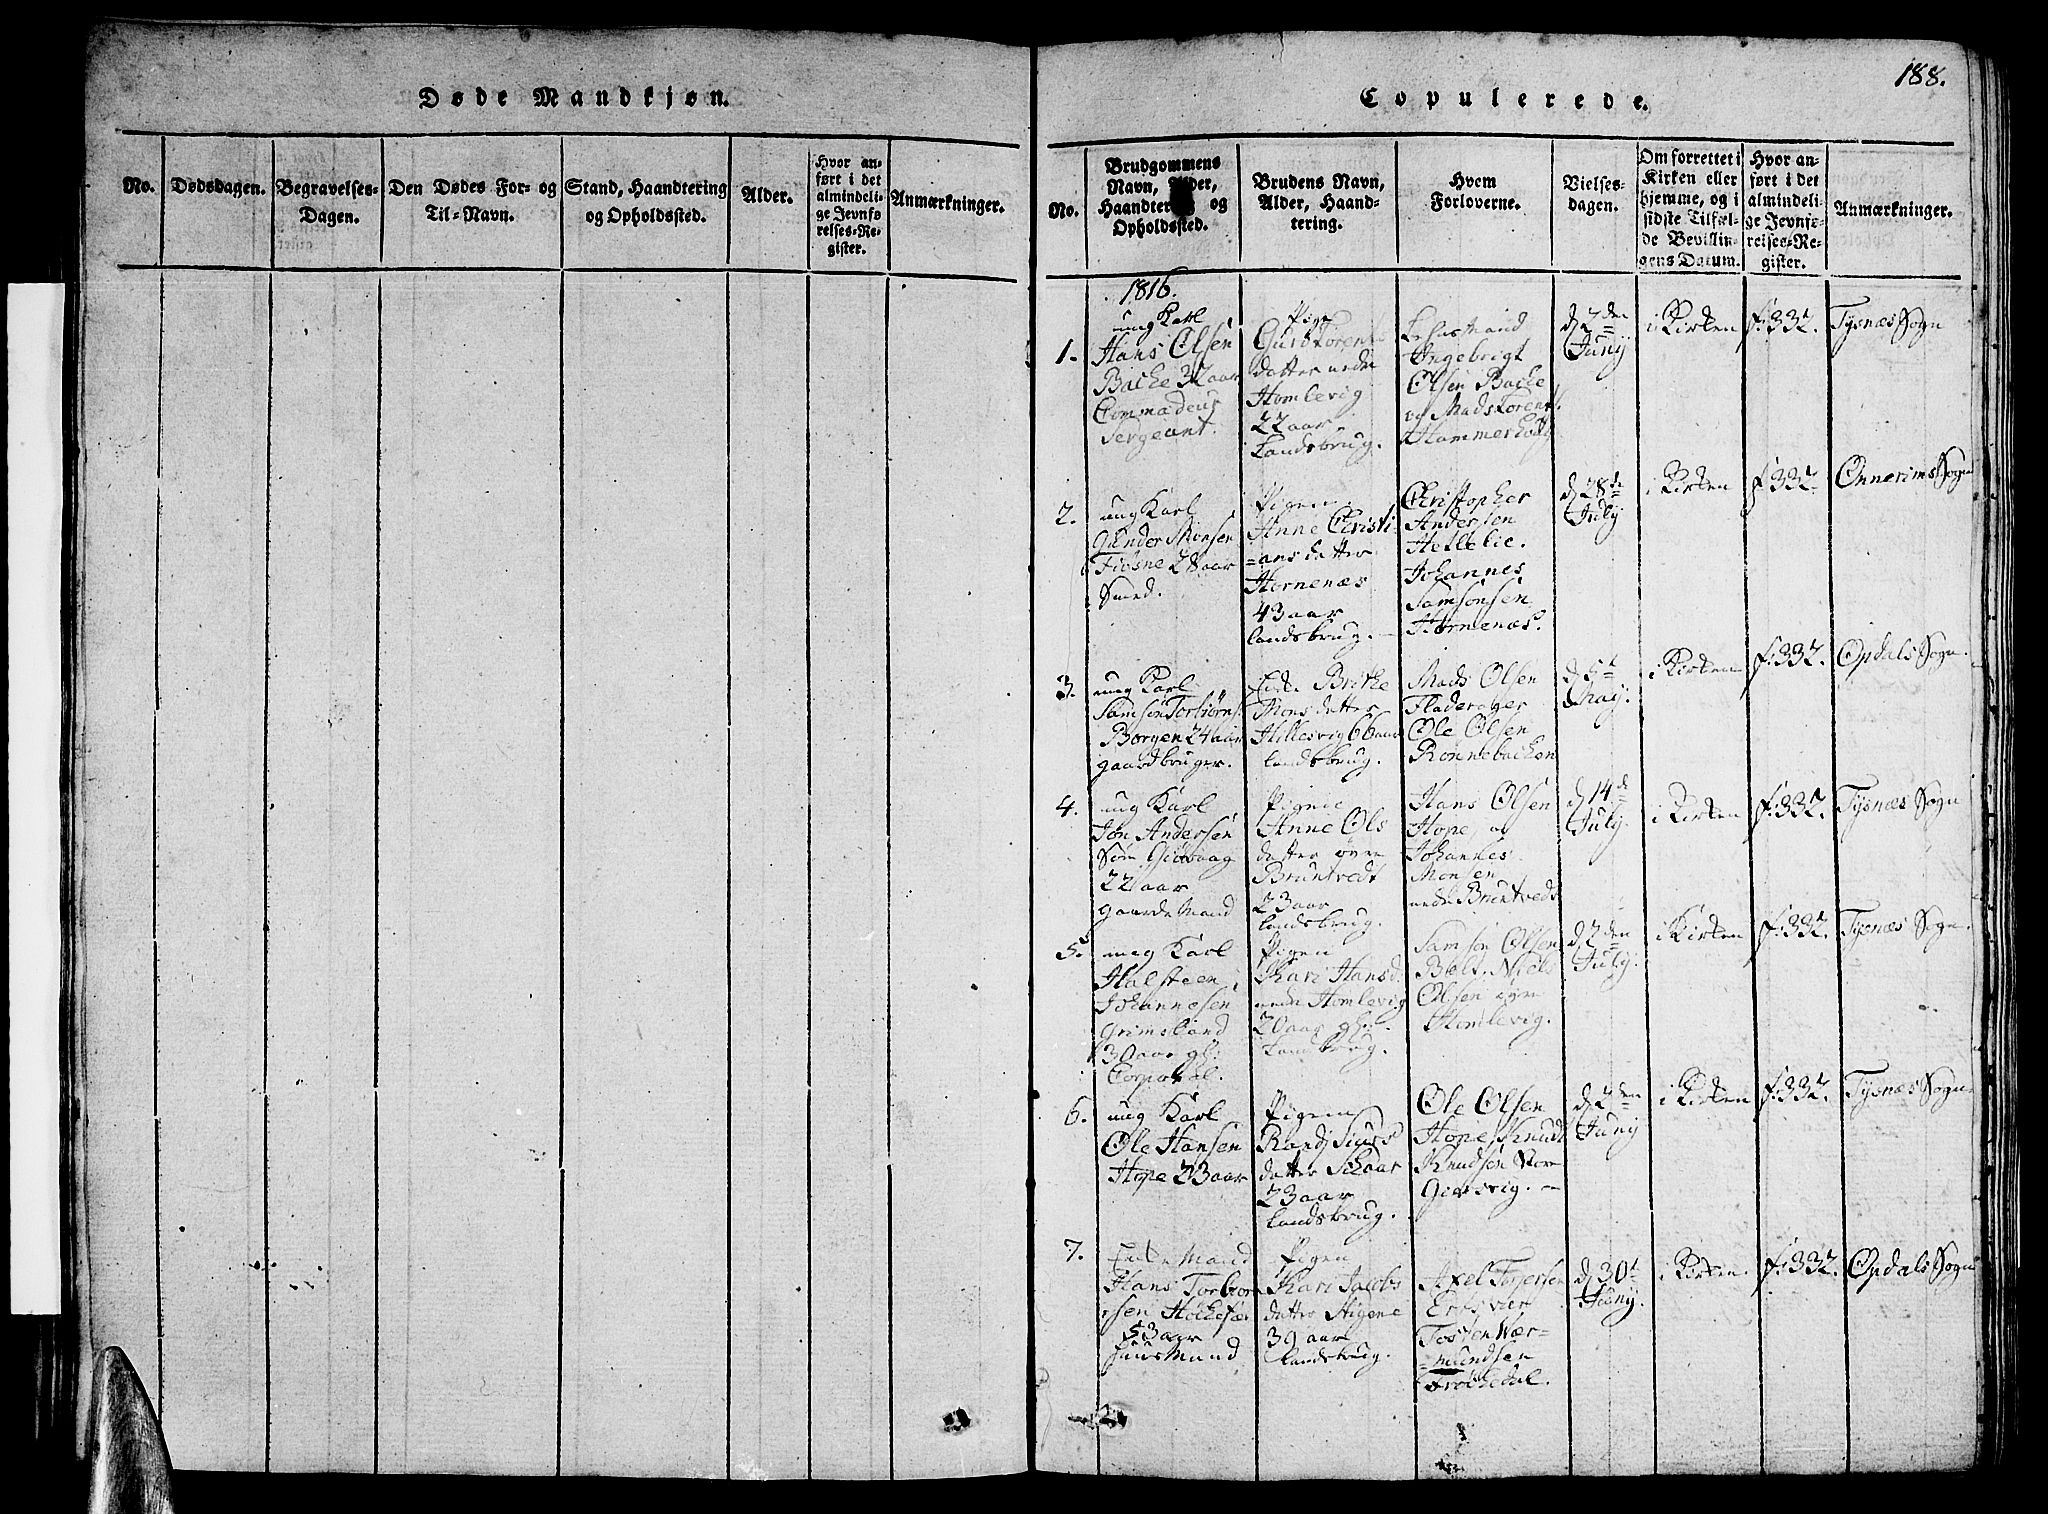 Døde Mandkjøn.
No.
Dødsdagen.
Begravelses-
Dagen.
Den Dødes For- og
Til-Navn.
Stand, Haandtering
og Opholdssted.
Alder.
Hvor an-
ført i det
almindeli-
ge Jevnfø-
relses-Re-
gister.
Anmærkninger.
188.
Copulerede.
No.
Brudgommens
Navn, Alder,
Haandtering og
Opholdssted.
Brudens Navn,
Alder, Haand-
tering.
Hvem
Forloverne.
Vielses-
dagen.
Om forrettet i
Kirken eller
hjemme, og i
sidste Tilfæl-
de Bevillin-
gens Datum.
Hvor an-
ført i det
almindeli-
ge Jevnfø-
relses-Re-
gister.
Anmærkninger.
1816.
1.
ung Karl
Hans Olsen
Bache 32 aar
Commadeur
Sergeant.
Pige
Guro Torens
datter nedre
Homlevig
22 aar
Landsbrug.
Huusmand
Ingebrigt
Olsen Bache
og Mads Torens.
Hammerhoug
d 2den
Juny
i Kirken
f. 332.
Tysnæs Sogn
2.
ung Karl
Gunder Monsen
Fiosne 28 aar
Smed.
Pigen
Anne Christi
=ans datter
Hornenæs
43 aar
landsbrug. –
Christopher
Andersen
Hellelie.
Johannes
Samsonsen
Hornenæs.
d 28de
July
i Kirken
f 332.
Onnerims Sogn
3.
ung Karl
Samson Torbiørns.
Borgen 24 aar
gaardbruger.
Enke Brithe
Mons datter
Hillesvig 66 aar
landsbrug.
Mads Olsen
Fladerager
Ole Olsen
Rønnebachen
d 5t
May.
i Kirken
f. 332.
Opdals Sogn.
4.
ung Karl
Jon Andersen
Søre Giøvaag
22 aar
gaardemand
Pigen
Anne Ols
datter øvre
Bruntvedt
23 aar
landsbrug.
Hans Olsen
Hope, og
Johannes
Monsen
nedre Bruntvedt
d 14de
July.
i Kirken
f. 332.
Tysnæs Sogn
5.
ung Karl
Halsteen
Johannesen
Grimsland
30 aar gl:
Corporal.
Pigen
Kari Hansd.
nedre Homlevig
20 aar gl:
Landsbrug.
Samson Olsen
Belt, Niels
Olsen øvre
Homlevig.
d 2den
July.
i Kirken
f. 332.
Tysnæs Sogn.
6.
ung Karl
Ole Hansen
Hope 23 aar
Pigen
Randj Siurs
datter Schaar
23 aar
Landsbrug.
Ole Olsen
Hope, Knud
Knudsen Store
Giersvig. –
d 2den
Juny
i Kirken
f. 332.
Tysnæs Sogn
7.
Enke Mand
Hans Torbiørn
sen
53 aar
huusmand
Pigen
Kari Jacobs
datter Stigene
39 aar
Landsbrug.
Axel Torjersen
Tosten Wær-
=mundsen
Trochedal.
d 30t
Juny.
i Kirken.
f. 332.
Opdals Sogn